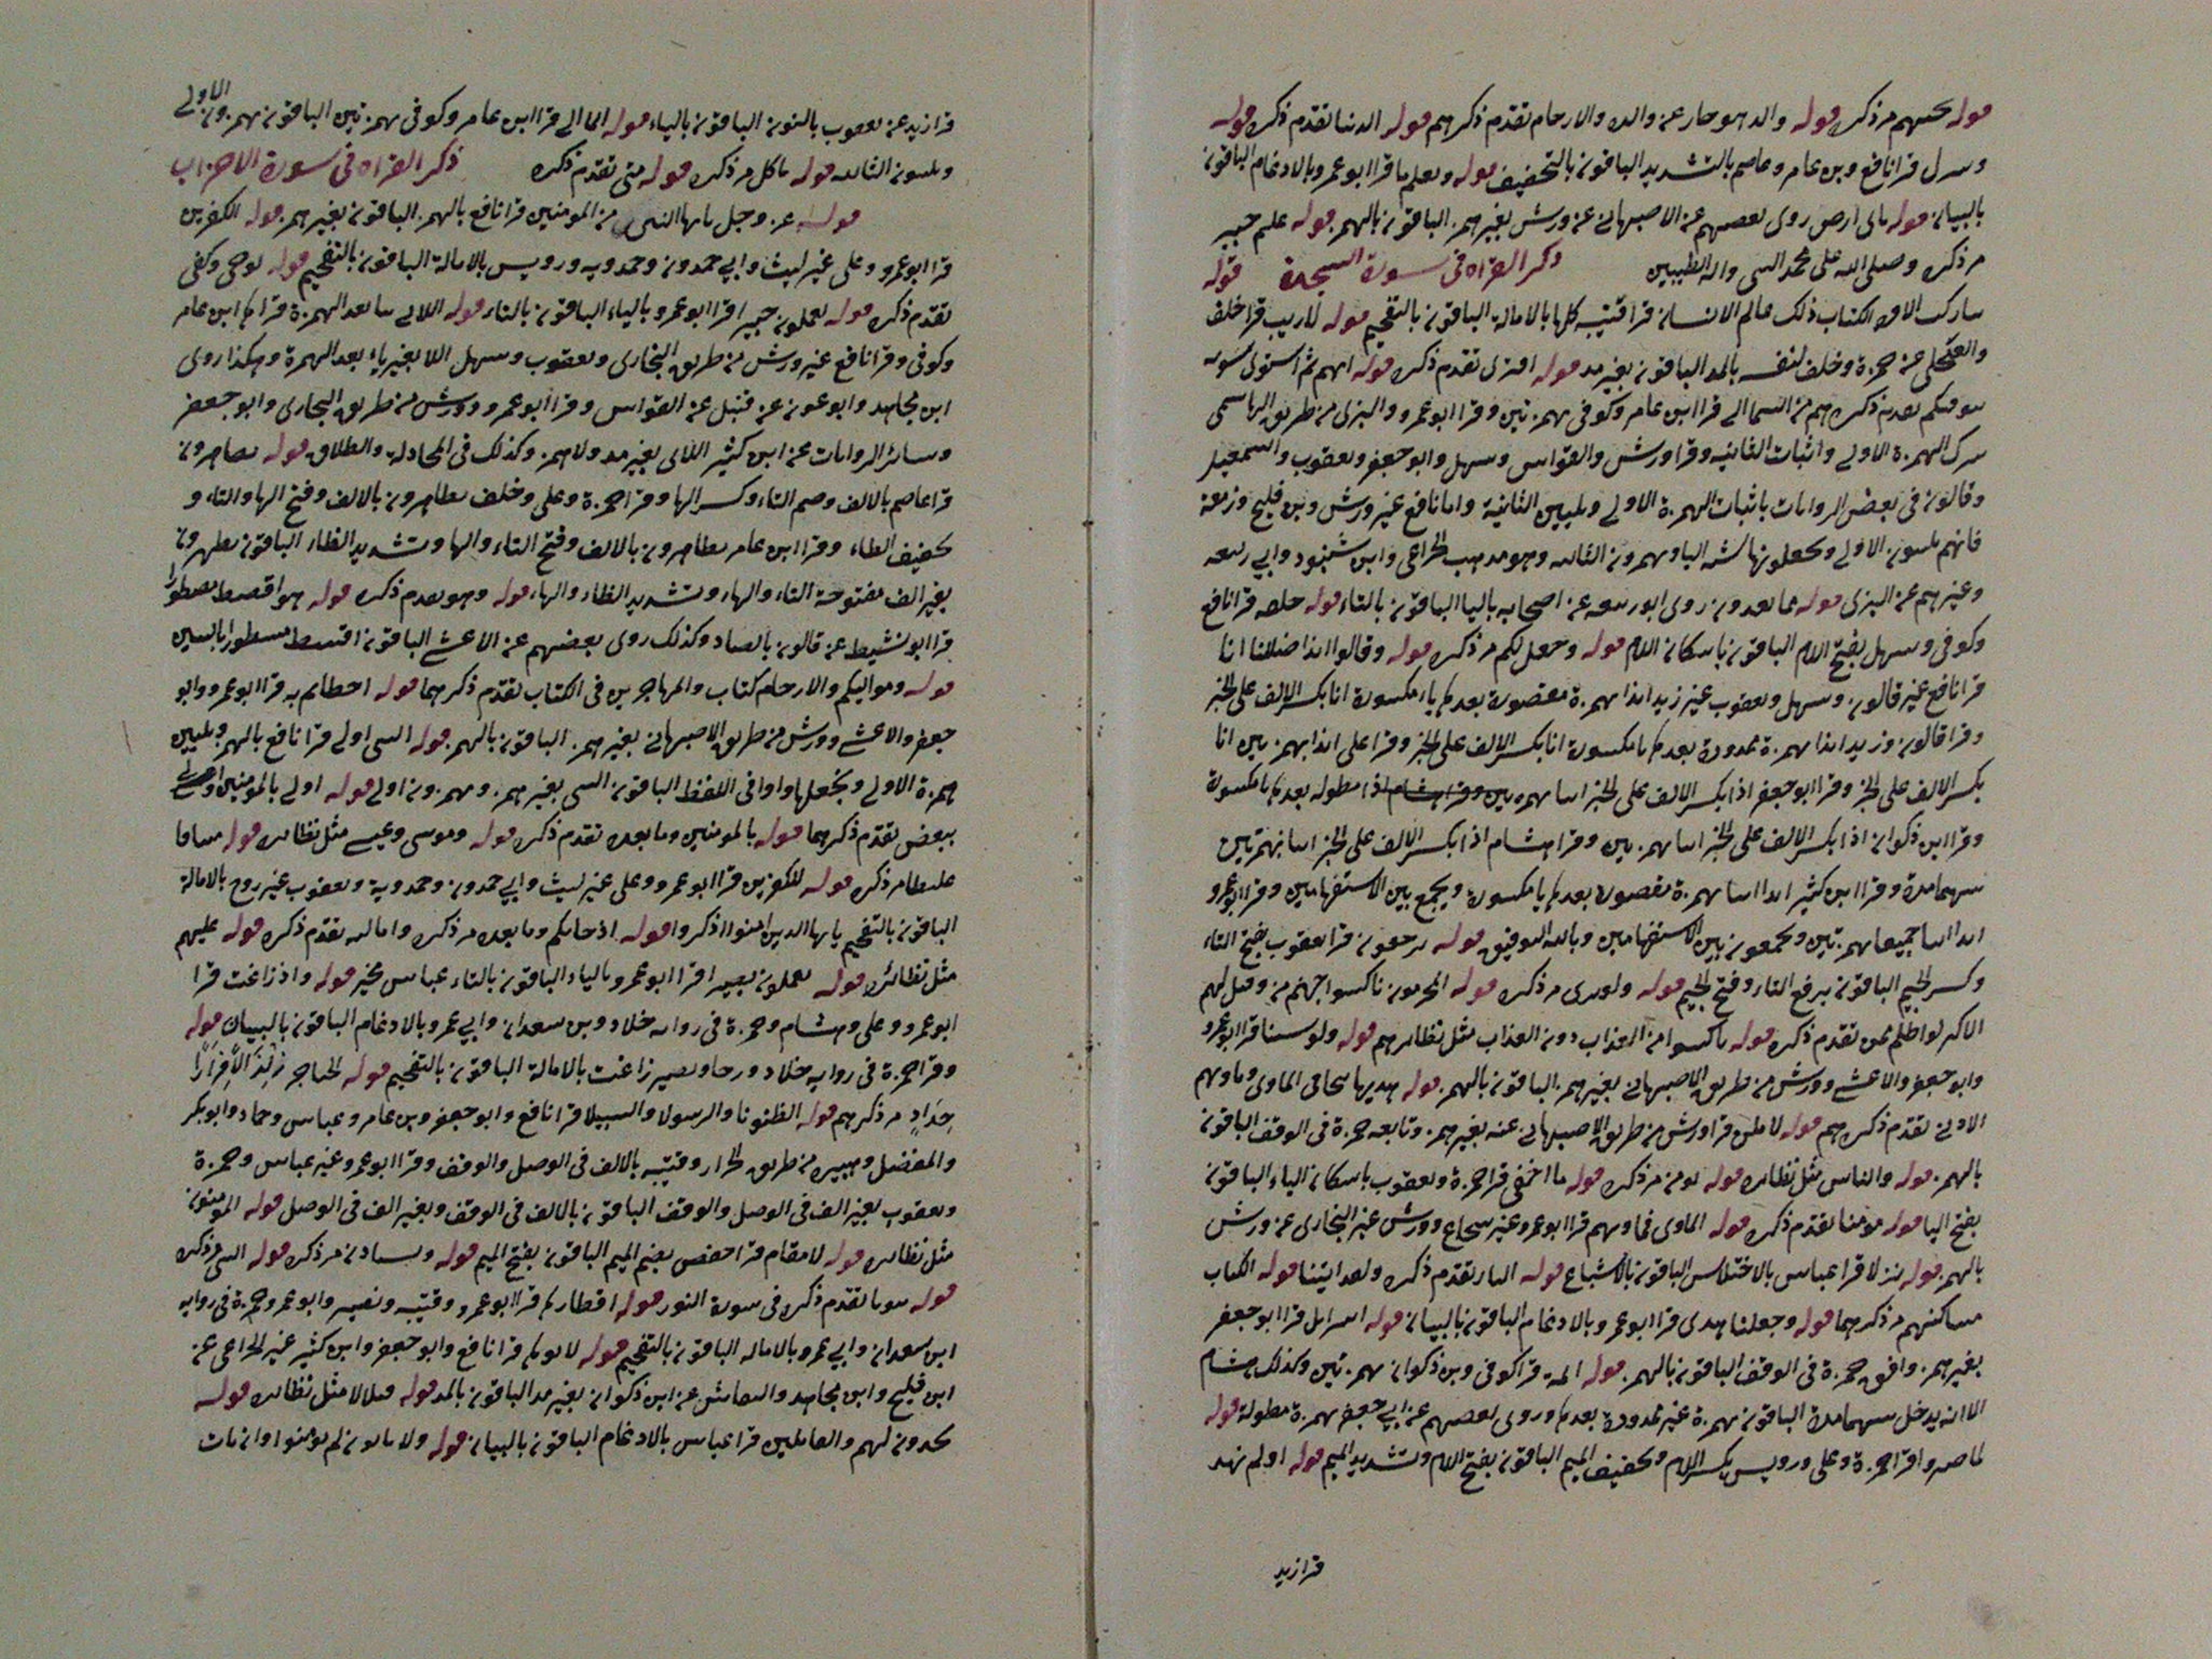 قوله مر ذكره قوله والد هو جاز عن والده والارحام تقدم ذكرهم قوله الدنيا تقدم ذكره قوله
وينزل قرا نافع وبن عامر وعاصم بالتشديد الباقون بالتخفيف قوله ويعلم ما قرا ابو عمرو بالادغام الباقون
بالبيان قوله باى ارض روى بعضهم عن الاصبهانى عن ورش بغير همز الباقون بالهمز قوله عليم خبير
مر ذكره وصلى الله على محمد النبى واله الطيبين ذكر القراه فى سورة السجدة قوله
تبارك الم الكتاب ذلك عالم الانسان قرا قتيبه كلها بالامالة الباقون بالتفخيم قوله لاريب قرا خلف
والعجلى عن حمزة وخلف لنفسه بالمد الباقون بغير مد قوله افترى تقدم ذكره قوله اتهم ثم استوى سويه
يتوفيكم تقدم ذكرهم من السما الى قرا ابن عامر وكوفى بهمزتين وقرا ابو عمرو والبزى من طريق الهاشمى
بترك الهمزة الاولى واثبات الثانيه وقرا ورش والقواس وسهل وابو جعفر ويعقوب واسمعيل
وقالون فى بعض الروايات باثبات الهمزة الاولى وتليين الثانية واما نافع غير ورش وبن فليح وزمعة
فانهم يلينون الاولى ويجعلونها شبه اليا ويهمزون الثانيه وهو مذهب الخزاعى وابن شنبوذ وابى ربيعه
وغيرهم عن البزى قوله مما تعدون روى ابو ربيعه عن اصحابه باليا الباقون بالتاء قوله خلقه قرا نافع
وكوفى وسهل بفتح اللام الباقون باسكان اللام قوله وجعل لكم مر ذكره قوله وقالوا ائذا ضللنا انا
قرا نافع غير قالون وسهل ويعقوب غير زيد ائذا بهمزة مقصورة بعدها ياء مكسورة انا بكسر الالف على الخبر
وقرا قالون وزيد ائذا بهمزة ممدودة بعدها يا مكسورة انا بكسر الالف على الخبر وقرا على ائذا بهمزتين انا
بكسر الالف على الخبر وقرا ابو جعفر اذا بكسر الالف على الخبر ائنا بهمزة مطوله بعدها يا مكسورة
وقرا ابن ذكوان اذا بكسر الالف على الخبر ائنا بهمزتين وقرا هشام اذا بكسر الالف على الخبر ائنا بهمزتين
بينهما مدة وقرا ابن كثير ائذا ائنا بهمزة مقصورة بعدها يا مكسورة ويجمع بين الاستفهامين وقرا ابو عمرو
ائذا ائنا جميعا بهمزتين ويجمعون بين الاستفهامين وبالله التوفيق قوله ترجعون قرا يعقوب بفتح التاء
وكسر الجيم الباقون برفع التاء وفتح الجيم قوله ولو ترى مر ذكره قوله المجرمون ناكسوا جهنم من وقيل لهم
الاكبر لو اظلم ممن تقدم ذكره قوله ناكسوا من العذاب دون العذاب مثل نظائرهم قوله ولو شئنا قرا ابو عمرو
وابو جعفر والاعشى وورش من طريق الاصبهانى بغير همز الباقون بالهمز قوله هديها تتجافى الماوى وماويهم
الادنى تقدم ذكرهم قوله لاملئن قرا ورش من طريق الاصبهانى عنه بغير همز وتابعه حمزة فى الوقف الباقون
بالهمز قوله والناس مثل نظائره قوله يومن مر ذكره قوله ما اخفى قرا حمزة ويعقوب باسكان الياء الباقون
بفتح اليا قوله مومنا تقدم ذكره قوله الماوى فماويهم قرا ابو عمرو غير شجاع وورش غير البخارى عن ورش
بالهمز قوله نزلا قرا عباس بالاختلاس الباقون بالاشباع قوله النار تقدم ذكره ولقد اتينا قوله الكتاب
مساكنهم مر ذكرهما قوله وجعلناه هدى قرا ابو عمرو بالادغام الباقون بالبيان قوله اسرائل قرا ابو جعفر
بغير همز وافق حمزة فى الوقف الباقون بالهمز قوله ائمة قرا كوفى وبن ذكوان بهمزتين وكذلك هشام
الا انه يدخل بينهما مدة الباقون بهمزة غير ممدودة بعدها وروى بعضهم عن ابى جعفر بهمزة مطولة قوله
لما صبروا قرا حمزة وعلى ورويس بكسر اللام وتخفيف الميم الباقون بفتح اللام وتشديد الميم قوله اولم نهد
قرا زيد
قرا زيد عن يعقوب بالنون الباقون بالياء قوله الما الى قرا ابن عامر وكوفى بهمزتين الباقون بهمزون الاولى
ويلينون الثانيه قوله تاكل مر ذكره قوله متى تقدم ذكره ذكر القراه فى سورة الاحزاب
قوله عز وجل يايها النبى من المومنين قرا نافع بالهمز الباقون بغير همز قوله الكفرين
قرا ابو عمرو وعلى غير ليث وابى حمدون وحمدويه ورويس بالامالة الباقون بالتفخيم قوله يوحى وكفى
تقدم ذكره قوله تعملون خبيرا قرا ابو عمرو بالياء الباقون بالتاء قوله اللائى بيا بعد الهمزة قراها ابن عامر
وكوفى وقرا نافع غير ورش من طريق البخارى ويعقوب وسهل اللا بغير ياء بعد الهمزة وهكذا روى
ابن مجاهد وابو عون عن قنبل عن القواس وقرا ابو عمرو وورش من طريق البخارى وابو جعفر
وسائر الروايات عن ابن كثير اللاى بغير مد ولا همز وكذلك فى المجادلة والطلاق قوله تظاهرون
قرا عاصم بالالف وضم التاء وكسر الها وقرا حمزة وعلى وخلف تظاهرون بالالف وفتح الها والتاء و
تخفيف الظاء وقرا ابن عامر تظاهرون بالالف وفتح التاء والها وتشديد الظاء الباقون تظهرون
بغير الف مفتوحة التاء والهاء وتشديد الظاء والهاء قوله وهو تقدم ذكره قوله هو اقصط مصطورا
قرا ابو نشيط عن قالون بالصاد وكذلك روى بعضهم عن الاعشى الباقون اقسط مسطورا بالسين
قوله ومواليكم والارحام كتاب والمهاجرين فى الكتاب تقدم ذكرهما قوله اخطاتم به قرا ابو عمرو وابو
جعفر والاعشى وورش من طريق الاصبهانى بغير همز الباقون بالهمز قوله النبى اولى قرا نافع بالهمز وتليين
همزة الاولى ويجعلها واوا فى اللفظ الباقون النبى بغير همز وبهمزون اولى قوله اولى بالمومنين اولى
ببعض تقدم ذكرهما قوله بالمومنين وما بعده تقدم ذكره قوله وموسى وعيسى مثل نظائره قوله ميثاقا
غليظا مر ذكره قوله للكفرين قرا ابو عمرو وعلى غير ليث وابى حمدون وحمدوية ويعقوب غير روح بالامالة
الباقون بالتفخيم يايها الذين امنوا اذكروا قوله اذ جاءكم وما بعده مر ذكره وامالته تقدم ذكره قوله عليهم
مثل نظائره قوله تعملون بصيرا قرا ابو عمرو بالياء الباقون بالتاء عباس مخير قوله واذ زاغت قرا
ابو عمرو وعلى وهشام وحمزة فى روايه خلاد وبن سعدان وابى عمرو بالادغام الباقون بالبيان قوله
وقرا حمزة فى روايه خلاد ورجا ونصير زاغت بالامالة الباقون بالتفخيم قوله الحناجر
حِدَادٍ مر ذكرهم قوله الظنونا والرسولا والسبيلا قرا نافع وابو جعفر وبن عامر وعباس وحماد وابو بكر
والمفضل وهبيره من طريق الخزاز وقتيبه بالالف فى الوصل والوقف وقرا ابو عمرو غير عباس وحمزة
ويعقوب بغير الف فى الوصل والوقف الباقون بالالف فى الوقف وبغير الف فى الوصل قوله المومنون
مثل نظائره قوله لا مقام قرا حفص بضم الميم الباقون بفتح الميم قوله ويستاذن مر ذكره قوله النبى مر ذكره
قوله بيوتنا تقدم ذكره فى سورة النور قوله اقطارها قرا ابو عمرو وقتيبه ونصير وابو عمر وحمزة فى روايه
ابن سعدان وابى عمرو بالاماله الباقون بالتفخيم قوله لاتوها قرا نافع وابو جعفر وابن كثير غير الخزاعى عن
ابن فليح وابن مجاهد والنقاش عن ابن ذكوان بغير مد الباقون بالمد قوله قليلا مثل نظائره قوله
يجدون لهم والقائلين قرا عباس بالادغام الباقون بالبيان قوله ولا ياتون لم يومنوا وان يات